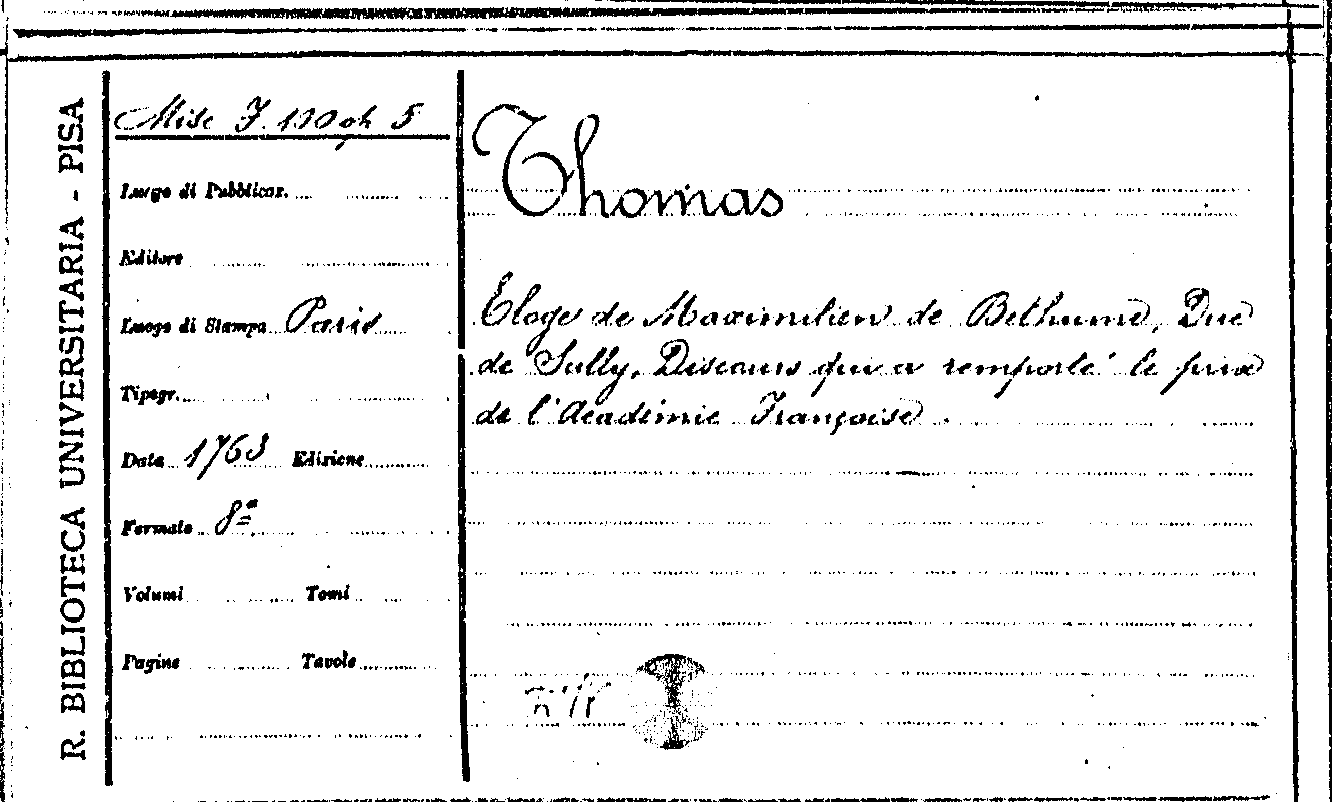 R. BIBLIOTECA UNIVERSITARIA - PISA
Misc
Luogo di Pubblicaz.
Editore
Luogo di Stampa Paris
Tipogr.
Data 1763 Edizione
Formato 8º
Volumi Tomi
Pagine Tavole
Thomas
Eloge de Maximilien de Bethune, Duc
de Sully, Discours qui a remporté le prix
de l'Académie Françoise.